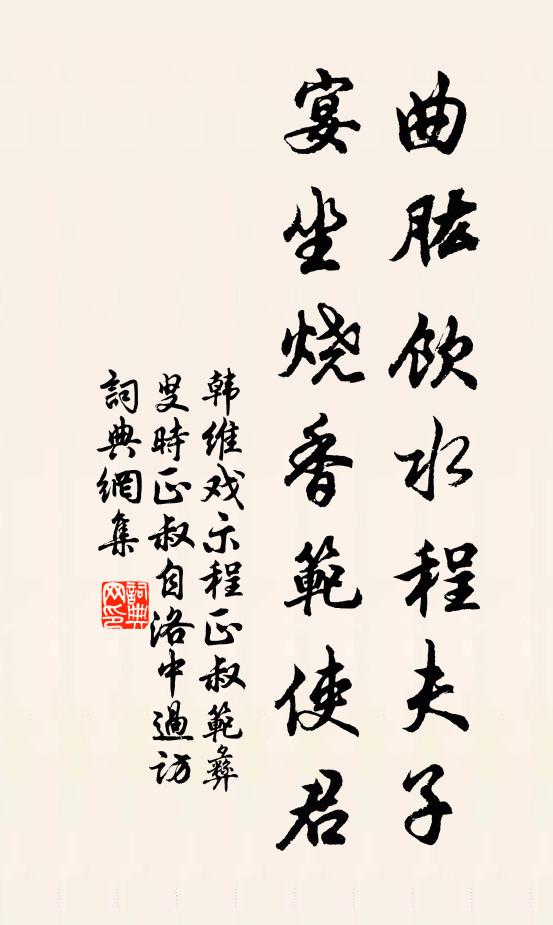 曲肱饮水程夫子
宴坐烧香範使君
韩维戏示程正叔範彝
叟時正叔自洛中過访
詞典網集
詞典网印